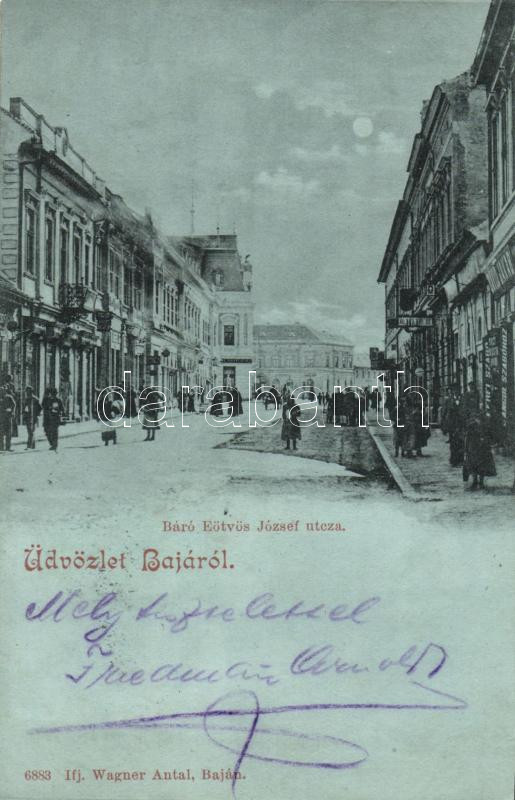 darabanth.com
Báró Eötvös József utcza.
Üdvözlet Bajáról.
Mély tisztelettel
Friedmann Arnold
6883 Ifj. Wagner Antal, Baján.